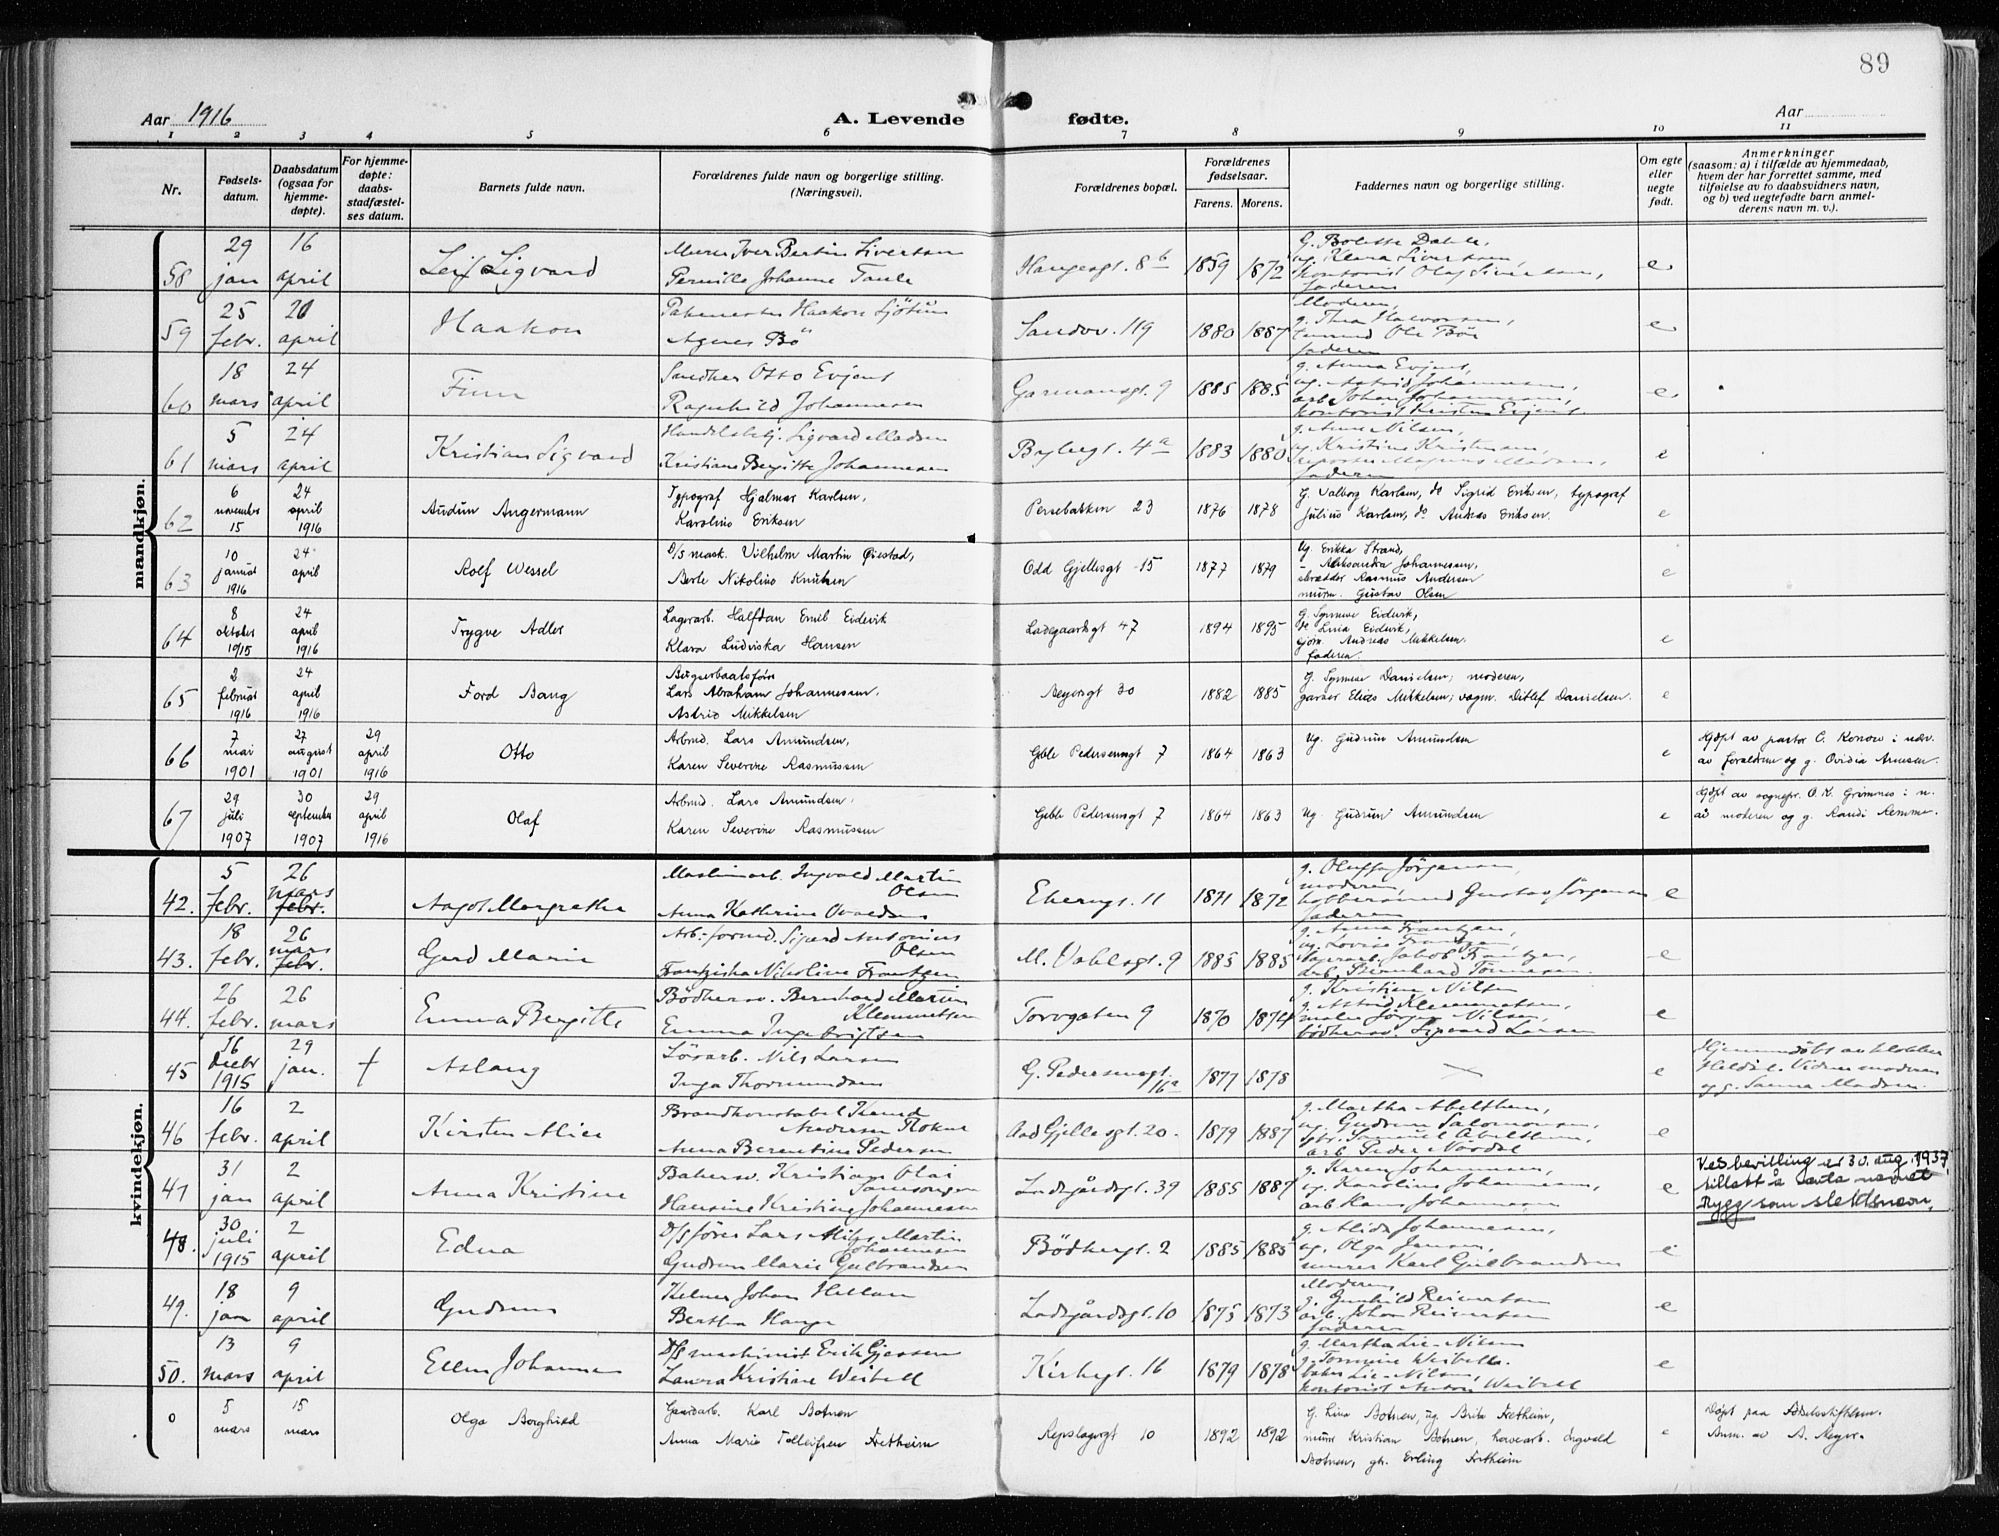 89
Aar 1916
A. Levende fødte.
Aar
1 2 3 4 5 6 7 8 9 10 11
Nr.
Fødsels-
datum.
Daabsdatum
(ogsaa for
hjemme-
døpte).
For hjemme-
døpte:
daabs-
stadfæstel-
ses datum.
Barnets fulde navn.
Forældrenes fulde navn og borgerlige stilling.
(Næringsvei).
Forældrenes bopæl.
Forældrenes
fødselsaar.
Farens. Morens.
Faddernes navn og borgerlige stilling.
Om egte
eller
uegte
født.
Anmerkninger
(saasom: a) i tilfælde av hjemmedaab,
hvem der har forrettet samme, med
tilføielse av to daabsvidners navn,
og b) ved uegtefødte barn anmel-
derens navn m. v.).
mandkjøn.
58
29
jan
16
april
Leif Sigvard
Murer Iver Bertin Sivertsen
Pernille Johanne
Haugesgt. 8b
1859 1872
g. Bolette Dahle,
ug. Klara Sivertsen,
kontorist Olaf Sivertsen,
faderen
e
59
25
febr.
20
april
Haakon
Haakon Sjötun
Agnes Bö
Sandvv. 119
1880 1887
Moderen,
g. Thea Halvorsen,
Ole Bö,
faderen
e
60
18
mars
24
april
Finn
Otto Evjent
Ragnhild Johannesen
Garmansgt. 9
1885 1885
g. Anna Evjent,
ug. Astrid Johannesen,
arb. Johan Johannesen,
kontorist Kristen Evjent.
e
61
5
mars
24
april
Kristian Sigvard
Handelsbetj. Sigvard Madsen
Kristiane Bergitte Johannesen
Bybergt. 4a
1883 1880
g. Anne Nilsen,
ug. Kristine Kristensen,
reporter Magnus Madsen,
faderen
e
62
6
november
15
24
april
1916
Audun Angermann
Typograf Hjalmar Karlsen,
Karoline Eriksen
Persebakken 23
1876 1878
g. Valborg Karlsen, do Sigrid Eriksen, typograf
Julius Karlsen, do Andreas Eriksen.
e
63
10
januar
1916
24
april
Rolf Wessel
D/S mask. Vilhelm Martin Øiestad,
Berte Nikoline Knutsen
Odd Gjellesgt 15
1877 1879
Ug. Erikka Strand,
" Aleksandra Johannessen,
skrædder Rasmus Andersen
murm. Gustav Olsen
e
64
8
oktober
1915
24
april
1916
Trygve Adler
Lagerarb. Halfdan Emil Eidevik
Klara Ludviska Hansen
Ladegaardsgt 47
1894 1895
g. Synneve Eidevik,
do Lina Eidevik,
gjørn Andreas Mikkelsen.
faderen.
e
65
2
februar
1916
24
april
1916
Ford Bang
Bugserbaatsfører
Lars Abraham Johannessen,
Astrid Mikkelsen
Meyersgt 30
1882 1885
g. Synneve Danielsen; moderen,
garver Elias Mikkelsen; vogm. Ditlef Danielsen.
e
66
7
mai
1901
27
august
1901
29
april
1916
Otto
Arbmd. Lars Amundsen,
Karen Severine Rasmussen
Geble Pedersensgt 7
1864 1863
ug. Gudrun Amundsen
e
Hjdøpt av pastor C. Konow i nærv.
av forældrene og g. Ovidia Arnesen.
67
29
juli
1907
30
september
1907
29
april
1916
Olaf
Arbmd. Lars Amundsen,
Karen Severine Rasmussen
Geble Pedersensgt 7
1864 1863
ug. Gudrun Amundsen
e
Hjdøpt av sognepr. O. K. Grimnes i n.
av moderen og g. Randi Remme.
kvindekjøn.
42.
5
febr.
26
mars
febr.
Aagot Margrethe
Maskinarb. Ingvald Martin
Olsen
Anna Kathrine
Ebergt. 11
1871 1872
g. Oluffa Jörgensen,
moderen,
Gustav Jörgensen
faderen
e
43.
18
febr.
26
mars
febr.
Gerd Marie
Arb.-formd. Sigurd Antonius
Olsen
Frantziska Nikoline Frantzen
M. Vahlsgt. 9
1885 1885
g. Anna Frantzen,
ug. Lovise Frantzen,
lagerarb. Jakob Frantzen,
arb. Bernhard Tönnesen.
e
44.
26
febr.
26
mars
Emma Bergitte
Bödkersv. Bernhard Martin
Klemmetsen
Emma Ingebrigtsen
Torvgaten 9
1870 1874
g. Kristine Nilsen
g. Astrid Klemmetsen,
maler Jörgen Nilsen,
bödkersv. Sigvard Larsen
e
45
16
Decbr
1915
29
jan.
†
Aslaug
Nils Larsen
Inga Thormundsen
G. Pedersensgt.
16a
1877 1878
×
e
Hjemmedöbt av klokker
Heldal. Vidner moderen
og g. Sanna Madsen.
46
16
febr.
2
april
Kirsten Alice
Brandkonstabel Knud
Andersen Flokne
Anna Berentine Pedersen
Aad Gjelles gt. 20.
1879 1887
g. Martha Abelthun,
ug. Gudrun Salomonsen,
Samuel Abelthun,
arb. Peder Nördal
e
47
31
jan
2
april
Anna Kristine
Bakersv. Kristian Olai
Hansine Kristine Johannesen
Ladegårdsgt. 39
1885 1887
g. Karen Johannesen,
ug. Karoline Johannesen,
arb. Hans Johannesen
e
Ved bevilling er 30. aug. 1937
tillatt å anta navnet
Rygg som slektsnavn.
48.
30
juli
1915
2
april
Edna
D/S förer Lars Nils Martin
Johannesen
Gudrun Marie Gulbrandsen
Bödkergt. 2
1885 1885
g. Alida Johannesen,
ug. Olga Jensen,
murer Karl Gulbrandsen
e
49.
18
jan
9
april
Gudrun
Kelner Johan Hillan
Bertha Hauge
Ladegårdsgt. 10
1875 1873
Moderen,
g. Gunhild Reinertsen
arb. Johan Reinertsen
faderen
e
50.
13
mars
9
april
Ellen Johanne
D/S maskinist Erik Gjessen
Laura Kristiane Weibell
Kirkegt. 16
1879 1878
g. Martha Lie-Nilsen
g. Tomine Weibell.
baker Lie-Nilsen,
kontorist Anton Weibell
e
0
5
mars
15
mars
Olga Borghild
Gaardarb. Karl Botnen
Anna Marie Tolleifsen Fretheim
Repslagergt 10
1892 1892
g. Lina Botnen, ug. Brita Fretheim,
murer Kristian Botnen, havearb. Ingvald
Botnen, gb. Erling Fretheim
e
Døpt paa Fødselsstiftelsen.
Anm. av A. Meyer.